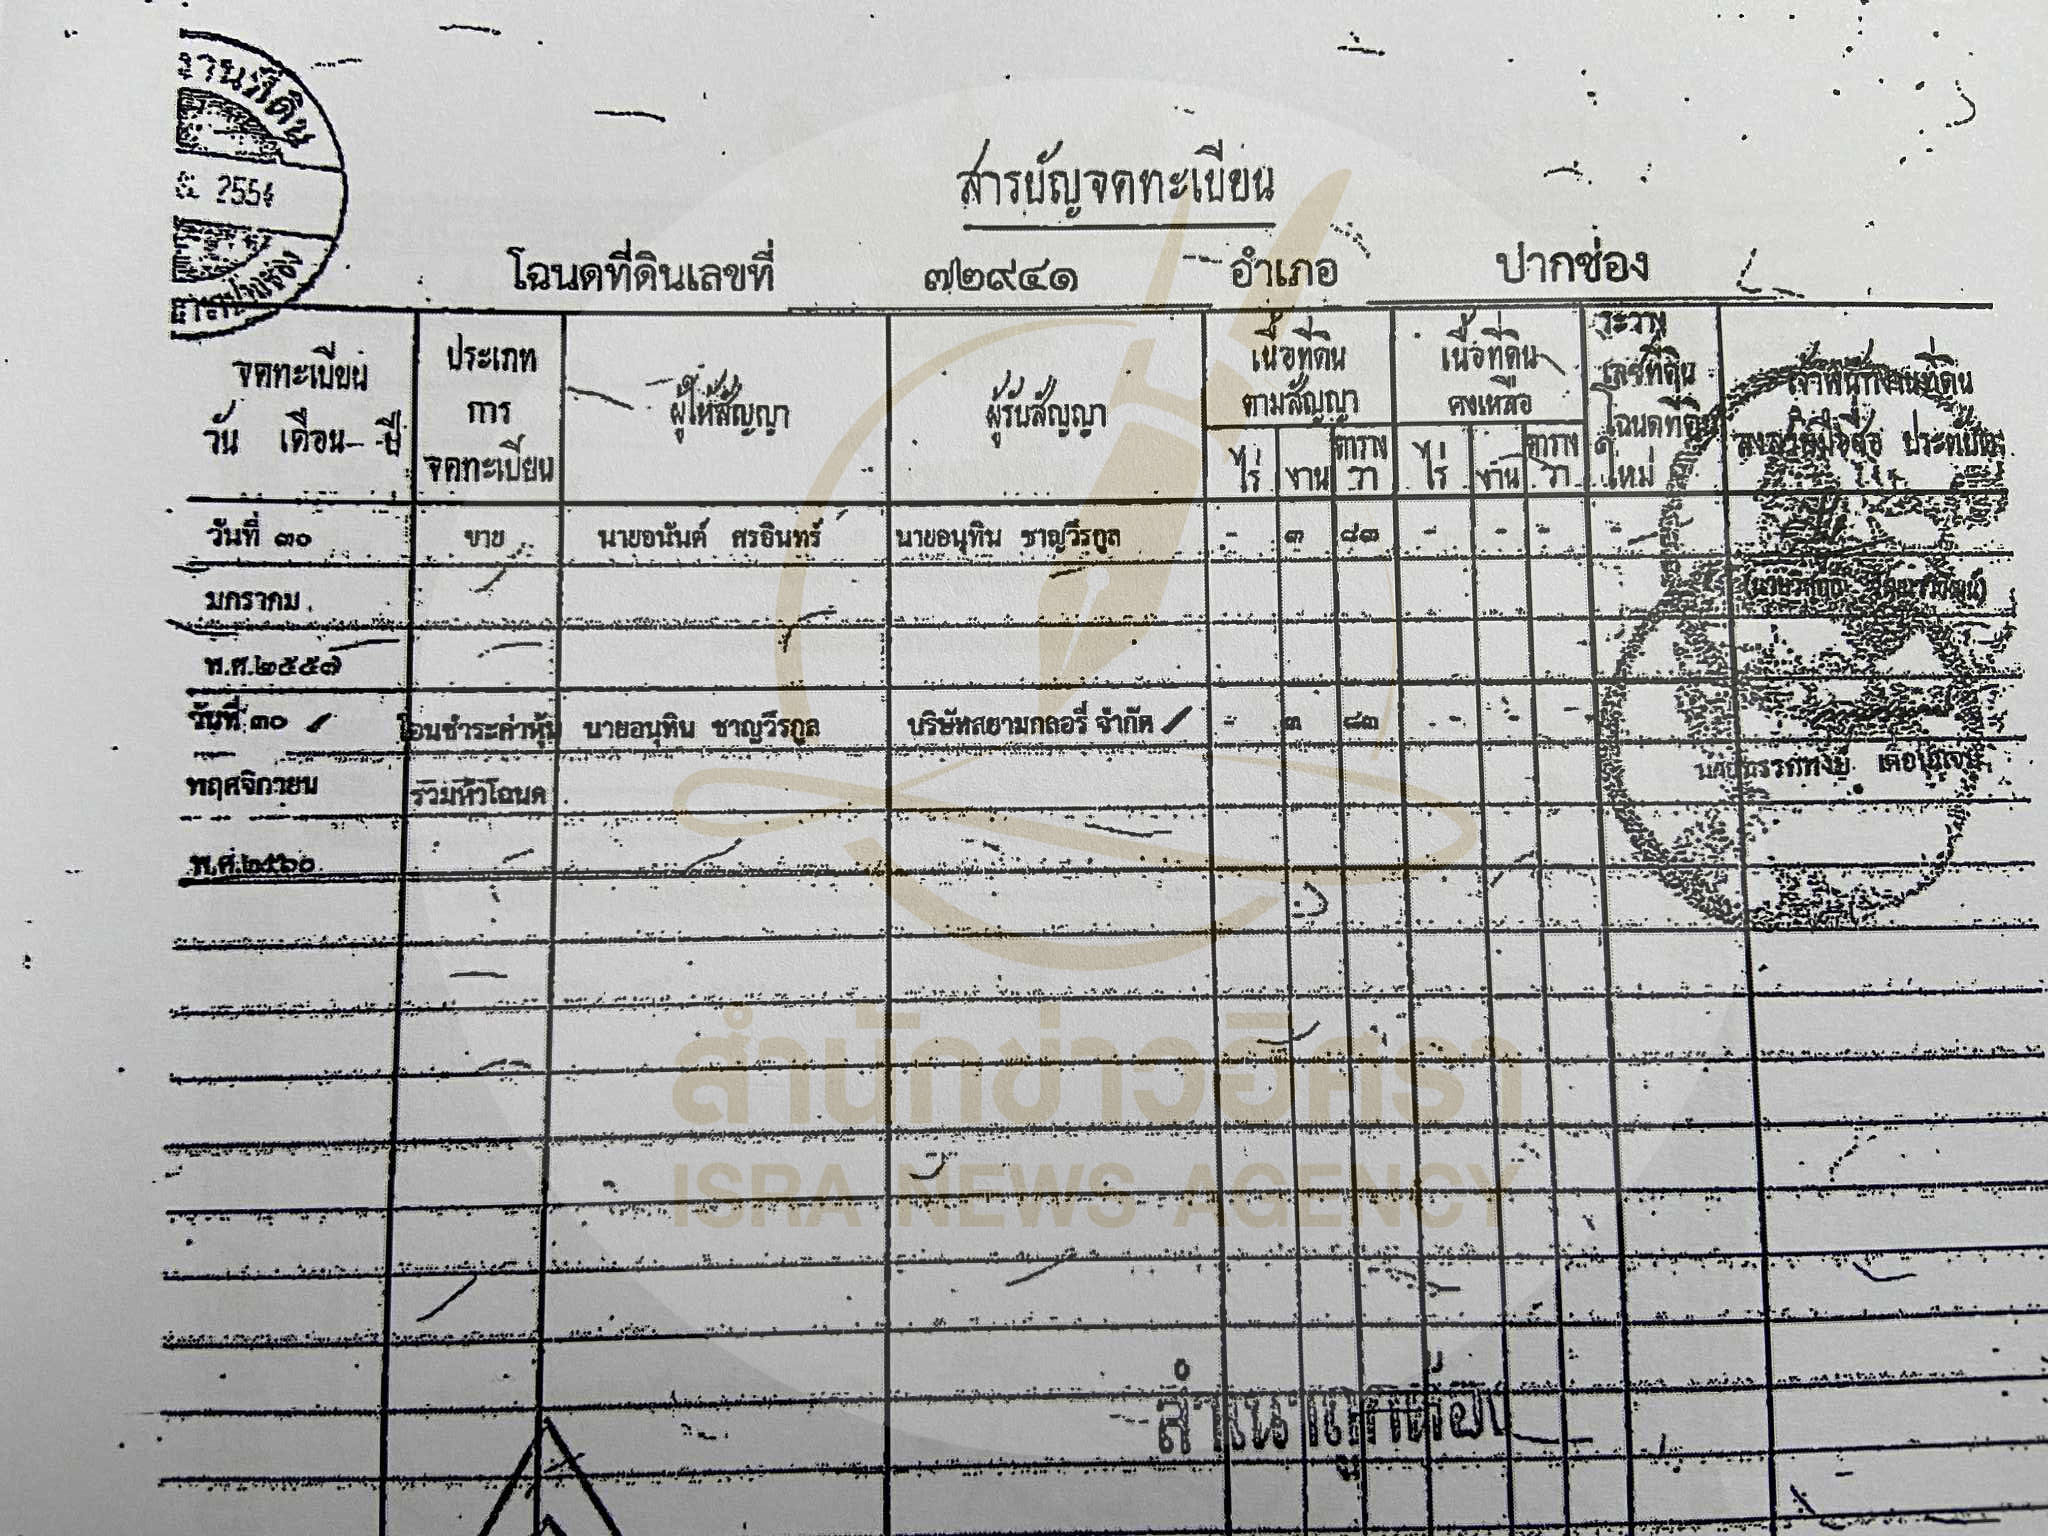 านที่ดิน
2554
ปากช่อง
สารบัญจดทะเบียน
โฉนดที่ดินเลขที่ ๗๒๙๔๑ อำเภอ ปากช่อง
จดทะเบียน
วัน เดือน ปี
ประเภท
การ
จดทะเบียน
ผู้ให้สัญญา
ผู้รับสัญญา
เนื้อที่ดิน
ตามสัญญา
ไร่ งาน ตาราง
วา
เนื้อที่ดิน
คงเหลือ
ไร่ งาน ตาราง
วา
ระวาง
เลขที่ดิน
โฉนดที่ดิน
ใหม่
เจ้าพนักงานที่ดิน
ลงลายมือชื่อ ประทับตรา
วันที่ ๓๐ ขาย นายอนันต์ ศรอินทร์ นายอนุทิน ชาญวีรกูล - ๓ ๘๓ - - - -
มกราคม
พ.ศ.๒๕๕๗
วันที่ ๓๐ โอนชำระค่าหุ้น นายอนุทิน ชาญวีรกูล บริษัทสยามกลอรี่ จำกัด - ๓ ๘๓ - - - -
พฤศจิกายน รวมหัวโฉนด
พ.ศ.๒๕๖๐
สำนักข่าวอิศรา
ISRA NEWS AGENCY
สำเนาถูกต้อง